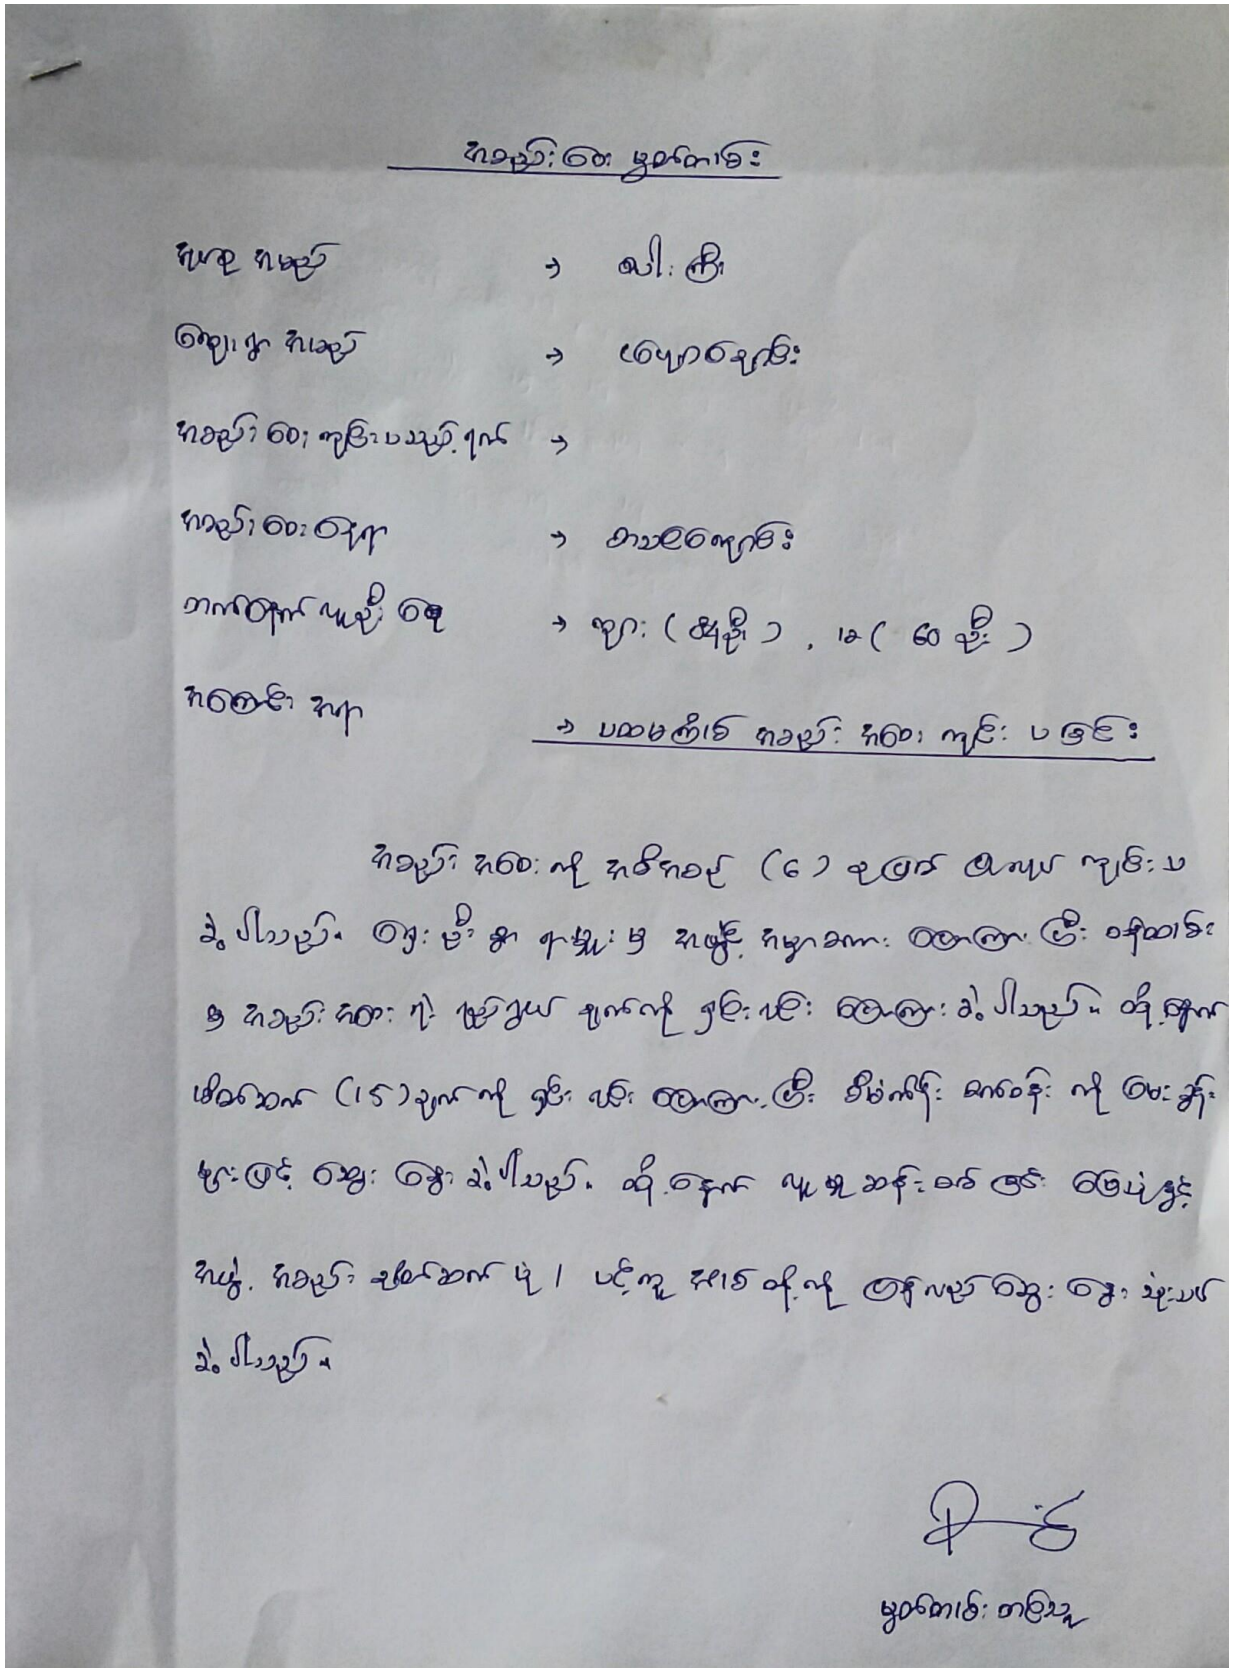 အစည်းအဝေး မှတ်တမ်း
အုပ်စု အမည် → ဝါးကြီး
ကျေးရွာ အမည် → ပျောချောင်း
အစည်းအဝေး ကျင်းပသည့်ရက် →
အစည်းအဝေး နေရာ → စာသင်ကျောင်း
တက်ရောက် လူဦးရေ → ကျား ( ဦး ) , မ ( ၆၀ ဦး )
အကြောင်း အရာ → ပထမကြိမ် အစည်း အဝေး ကျင်း ပ ခြင်း
အစည်း အဝေး ကို အစီအစဉ် (၆) ခုဖြင့် ကျင်း ပ
ခဲ့ ပါသည်။ ရှေး ဦး စွာ ရာအိမ်မှူး မှ အဖွင့် အမှာစကား ပြောကြား ပြီး ဝန်ထမ်း
မှ အစည်း အဝေး ရဲ့ ရည်ရွယ် ချက်ကို ရှင်း လင်း ပြောကြား ခဲ့ ပါသည်။ ထို့နောက်
(15) ချက် ကို ရှင်း လင်း ပြောကြား ပြီး စီမံကိန်း ကို မေး ခွန်း
များ ဖြင့် ဆွေး နွေး ခဲ့ ပါသည်။ ထို့ နောက် လူမှု ဆန်း စစ် ခြင်း မြေပုံ နှင့်
အဖွဲ့ အစည်း ချိတ်ဆက် ပုံ / ပင့်ကူ အိမ် တို့ ကို ပြန်လည် ဆွေး နွေး သုံးသပ်
ခဲ့ ပါသည်။
မှတ်တမ်း တင်သူ